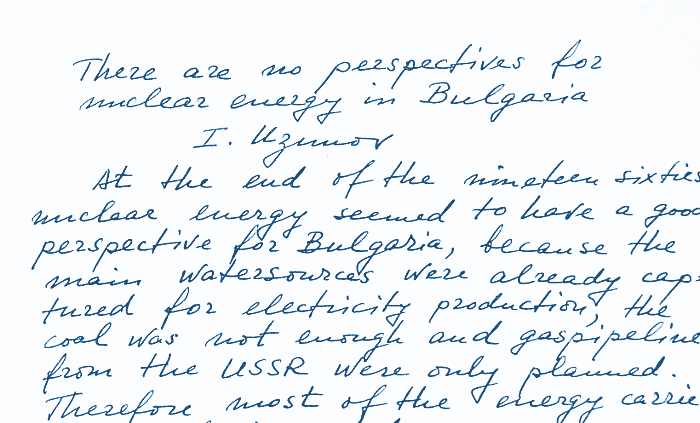 There are no perspectives for
nuclear energy in Bulgaria
I. Uzunov
At the end of the nineteen sixties
nuclear energy seemed to have a good
perspective for Bulgaria, because the
main watersources were already cap-
tured for electricity production, the
coal was not enough and gaspipeline
from the USSR were only planned.
Therefore most of the energy carrie